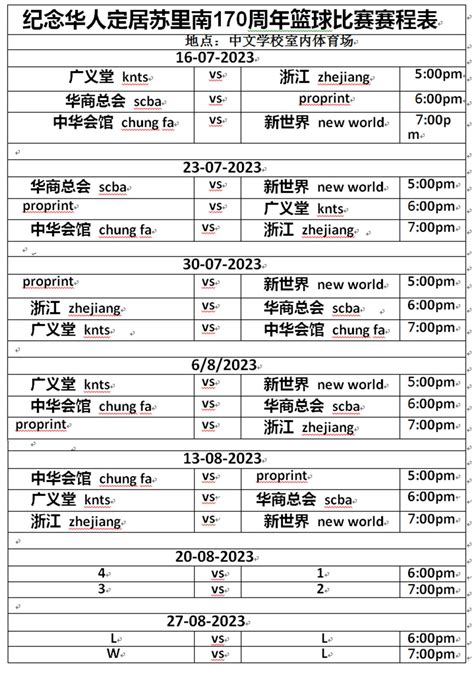 纪念华人定居苏里南170周年篮球比赛赛程表
地点：中文学校室内体育场
16-07-2023
广义堂 knts vs 浙江 zhejiang 5:00pm
华商总会 scba vs proprint 6:00pm
中华会馆 chung fa vs 新世界 new world 7:00p
m
23-07-2023
华商总会 scba vs 新世界 new world 5:00pm
proprint vs 广义堂 knts 6:00pm
中华会馆 chung fa vs 浙江 zhejiang 7:00pm
30-07-2023
proprint vs 新世界 new world 5:00pm
浙江 zhejiang vs 华商总会 scba 6:00pm
广义堂 knts vs 中华会馆 chung fa 7:00pm
6/8/2023
广义堂 knts vs 新世界 new world 5:00pm
中华会馆 chung fa vs 华商总会 scba 6:00pm
proprint vs 浙江 zhejiang 7:00pm
13-08-2023
中华会馆 chung fa vs proprint 5:00pm
广义堂 knts vs 华商总会 scba 6:00pm
浙江 zhejiang vs 新世界 new world 7:00pm
20-08-2023
4 vs 1 6:00pm
3 vs 2 7:00pm
27-08-2023
L vs L 6:00pm
W vs L 7:00pm